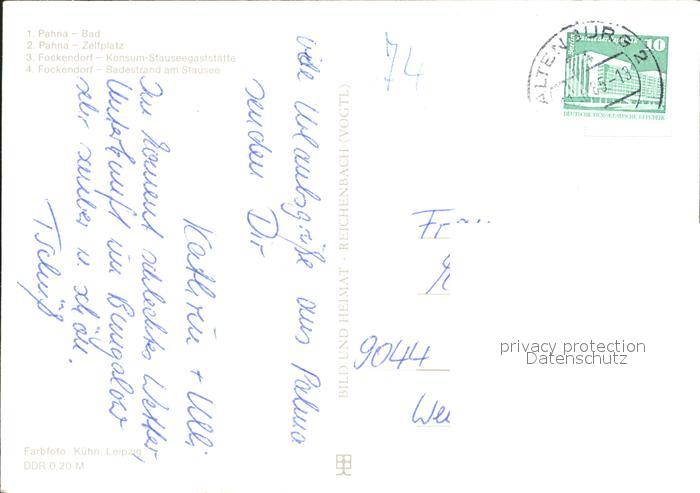 1. Pahna – Bad
2. Pahna – Zeltplatz
3. Fockendorf – Konsum-Stauseegaststätte
4. Fockendorf – Badestrand am Stausee
Viele Urlaubsgrüße aus Pahna
senden Dir
Kathrin + Ulli
Im Moment schlechtes Wetter,
Unterkunft im Bungalow
sehr sauber u. schön.
Tschüß
Farbfoto: Kühn, Leipzig
DDR 0,20 M
BILD UND HEIMAT · REICHENBACH (VOGTL)
74
ALTENBURG 2
10
DEUTSCHE DEMOKRATISCHE REPUBLIK
9044
privacy protection
Datenschutz